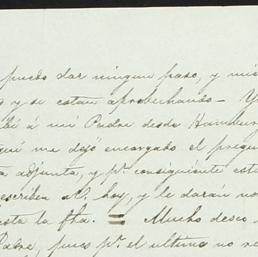 puedo dar ningun paso, y mis
y se estan aprobechando — Y
bi á mi Padre desde Hambur
qué me dejo encargado el pregun
a adjunta, y pr. consiguiente est
escriben N. hoy, y le darán no
esta la fha. = Mucho deseo
Padre, pues pr. el ultimo no re